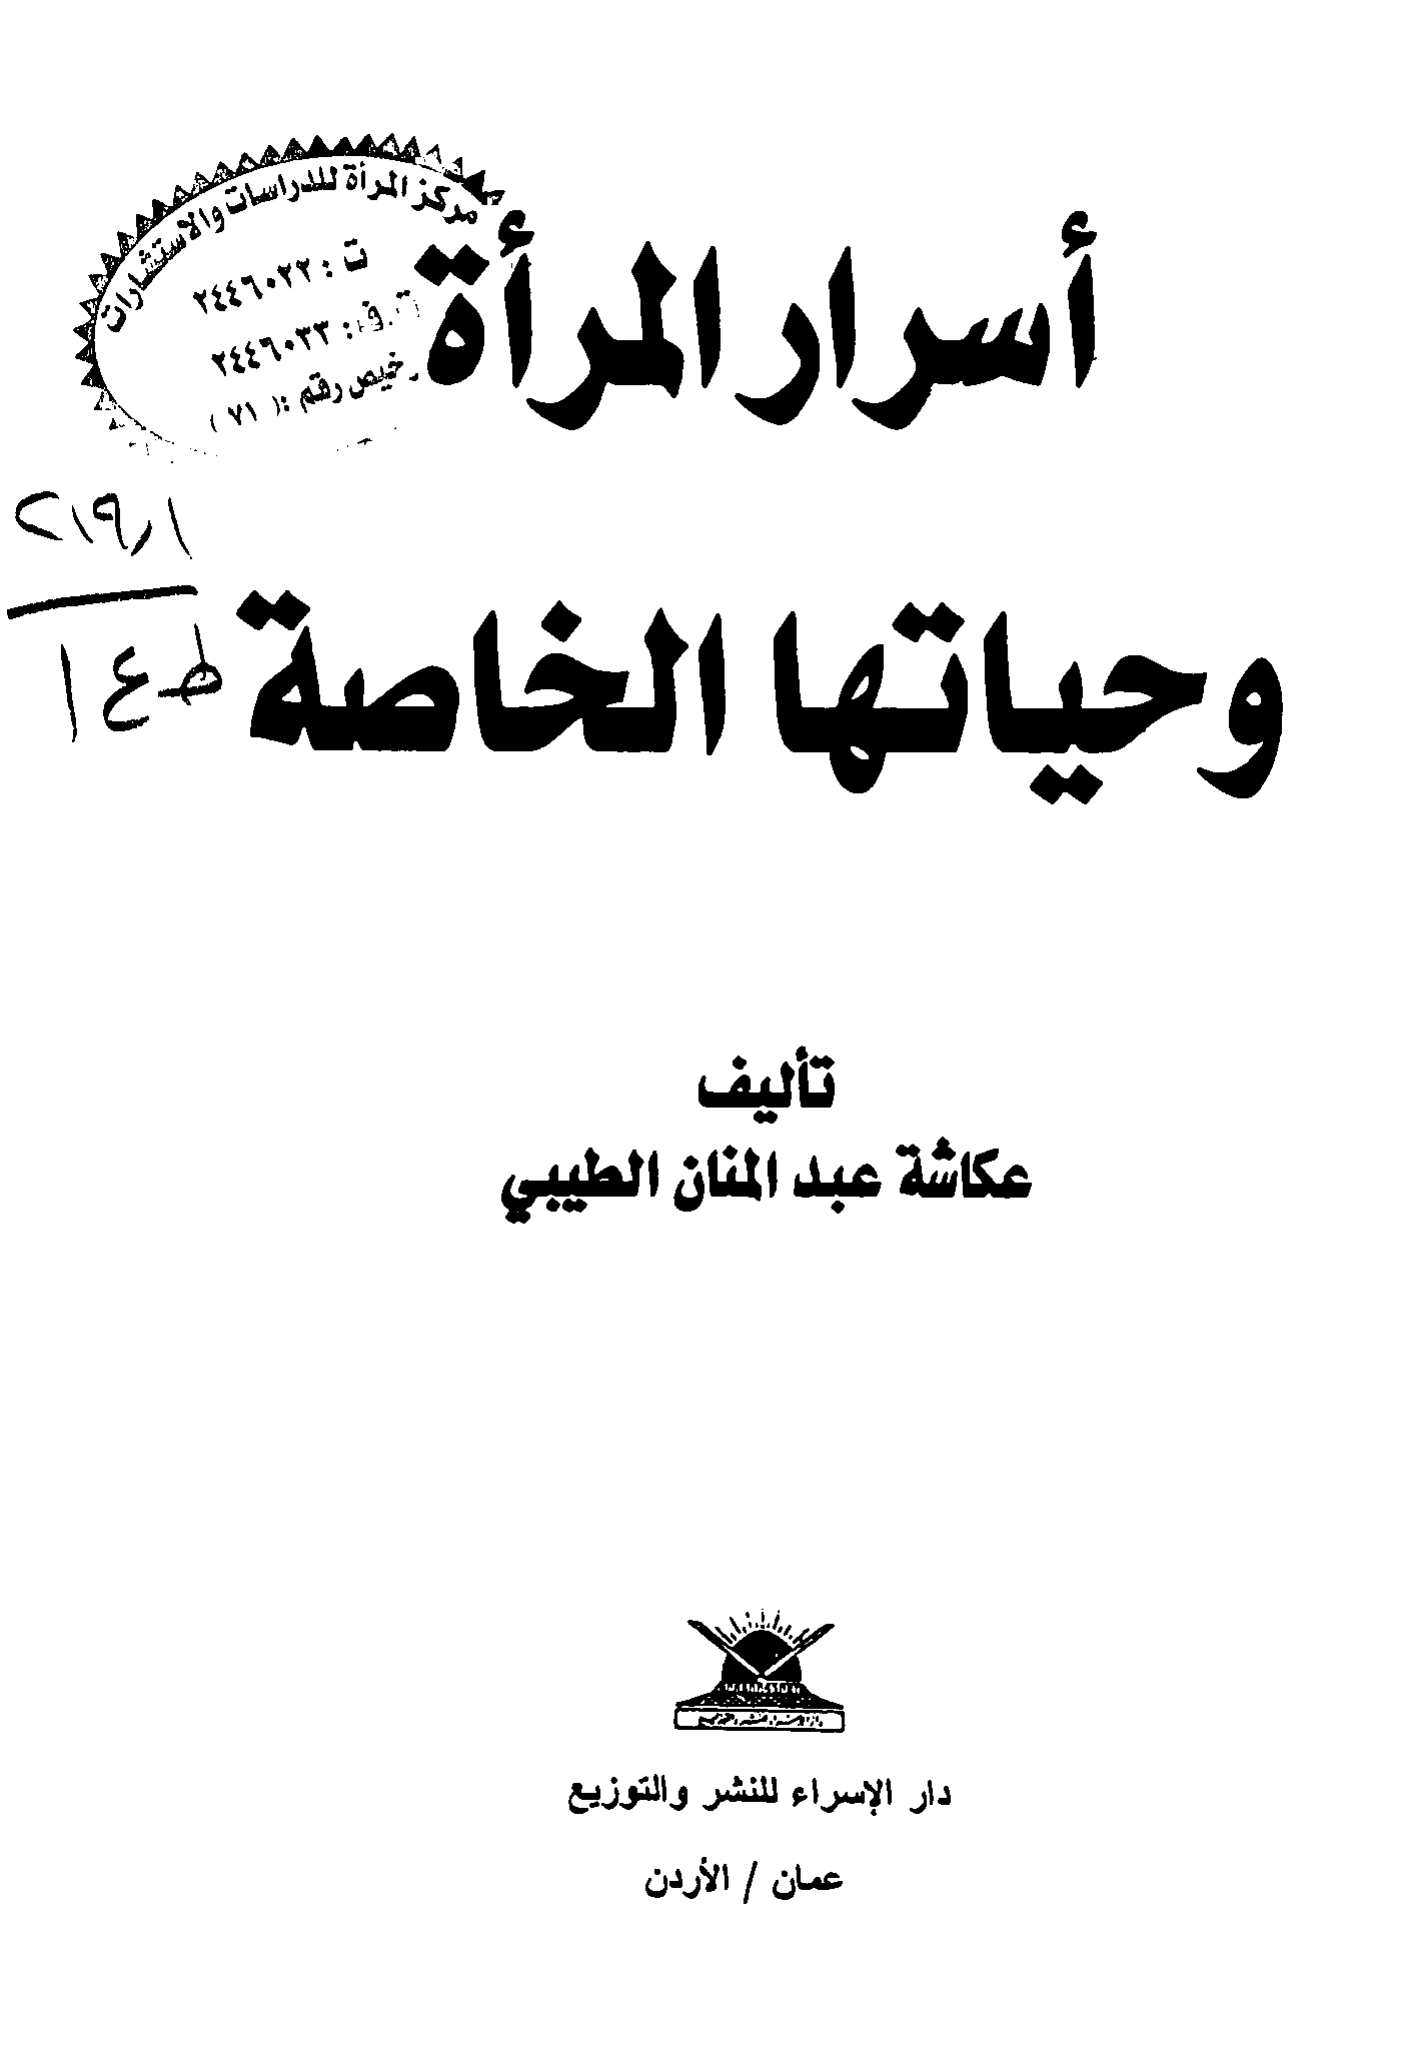 مركز المرأة للدراسات والاستشارات
ت : ٢٤٤٦٠٢٢
ت.ف : ٢٤٤٦٠٣٣
خيص رقم :( ٧١ )
أسرار المرأة
٢١٩٫١
ط ع ا
وحياتها الخاصة
تأليف
عكاشة عبد المنان الطيبي
دار الإسراء للنشر والتوزيع
عمان / الأردن